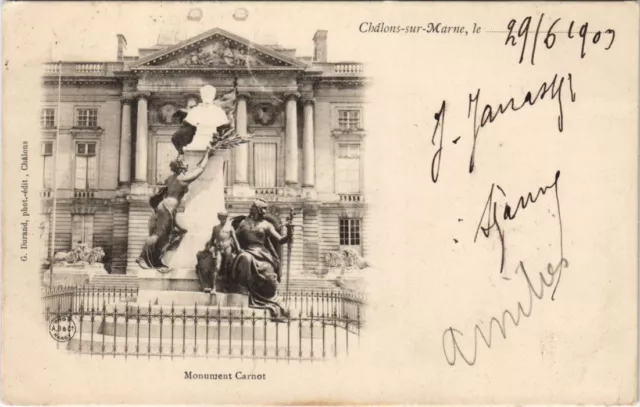 Châlons-sur-Marne, le 29/6 1903
J. Janassy
Jeanne
amitiés
G. Durand, phot.-édit, Châlons
Monument Carnot